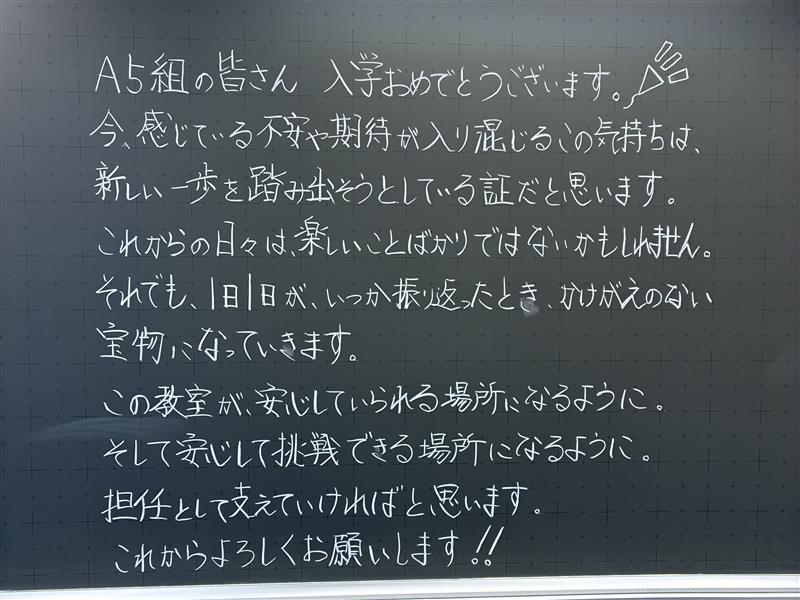 A5組の皆さん 入学おめでとうございます。
今、感じている不安や期待が入り混じるこの気持ちは、
新しい一歩を踏み出そうとしている証だと思います。
これからの日々は、楽しいことばかりではないかもしれません。
それでも、1日1日が、いつか振り返ったとき、かけがえのない
宝物になっていきます。
この教室が、安心していられる場所になるように。
そして安心して挑戦できる場所になるように。
担任として支えていければと思います。
これからよろしくお願いします!!